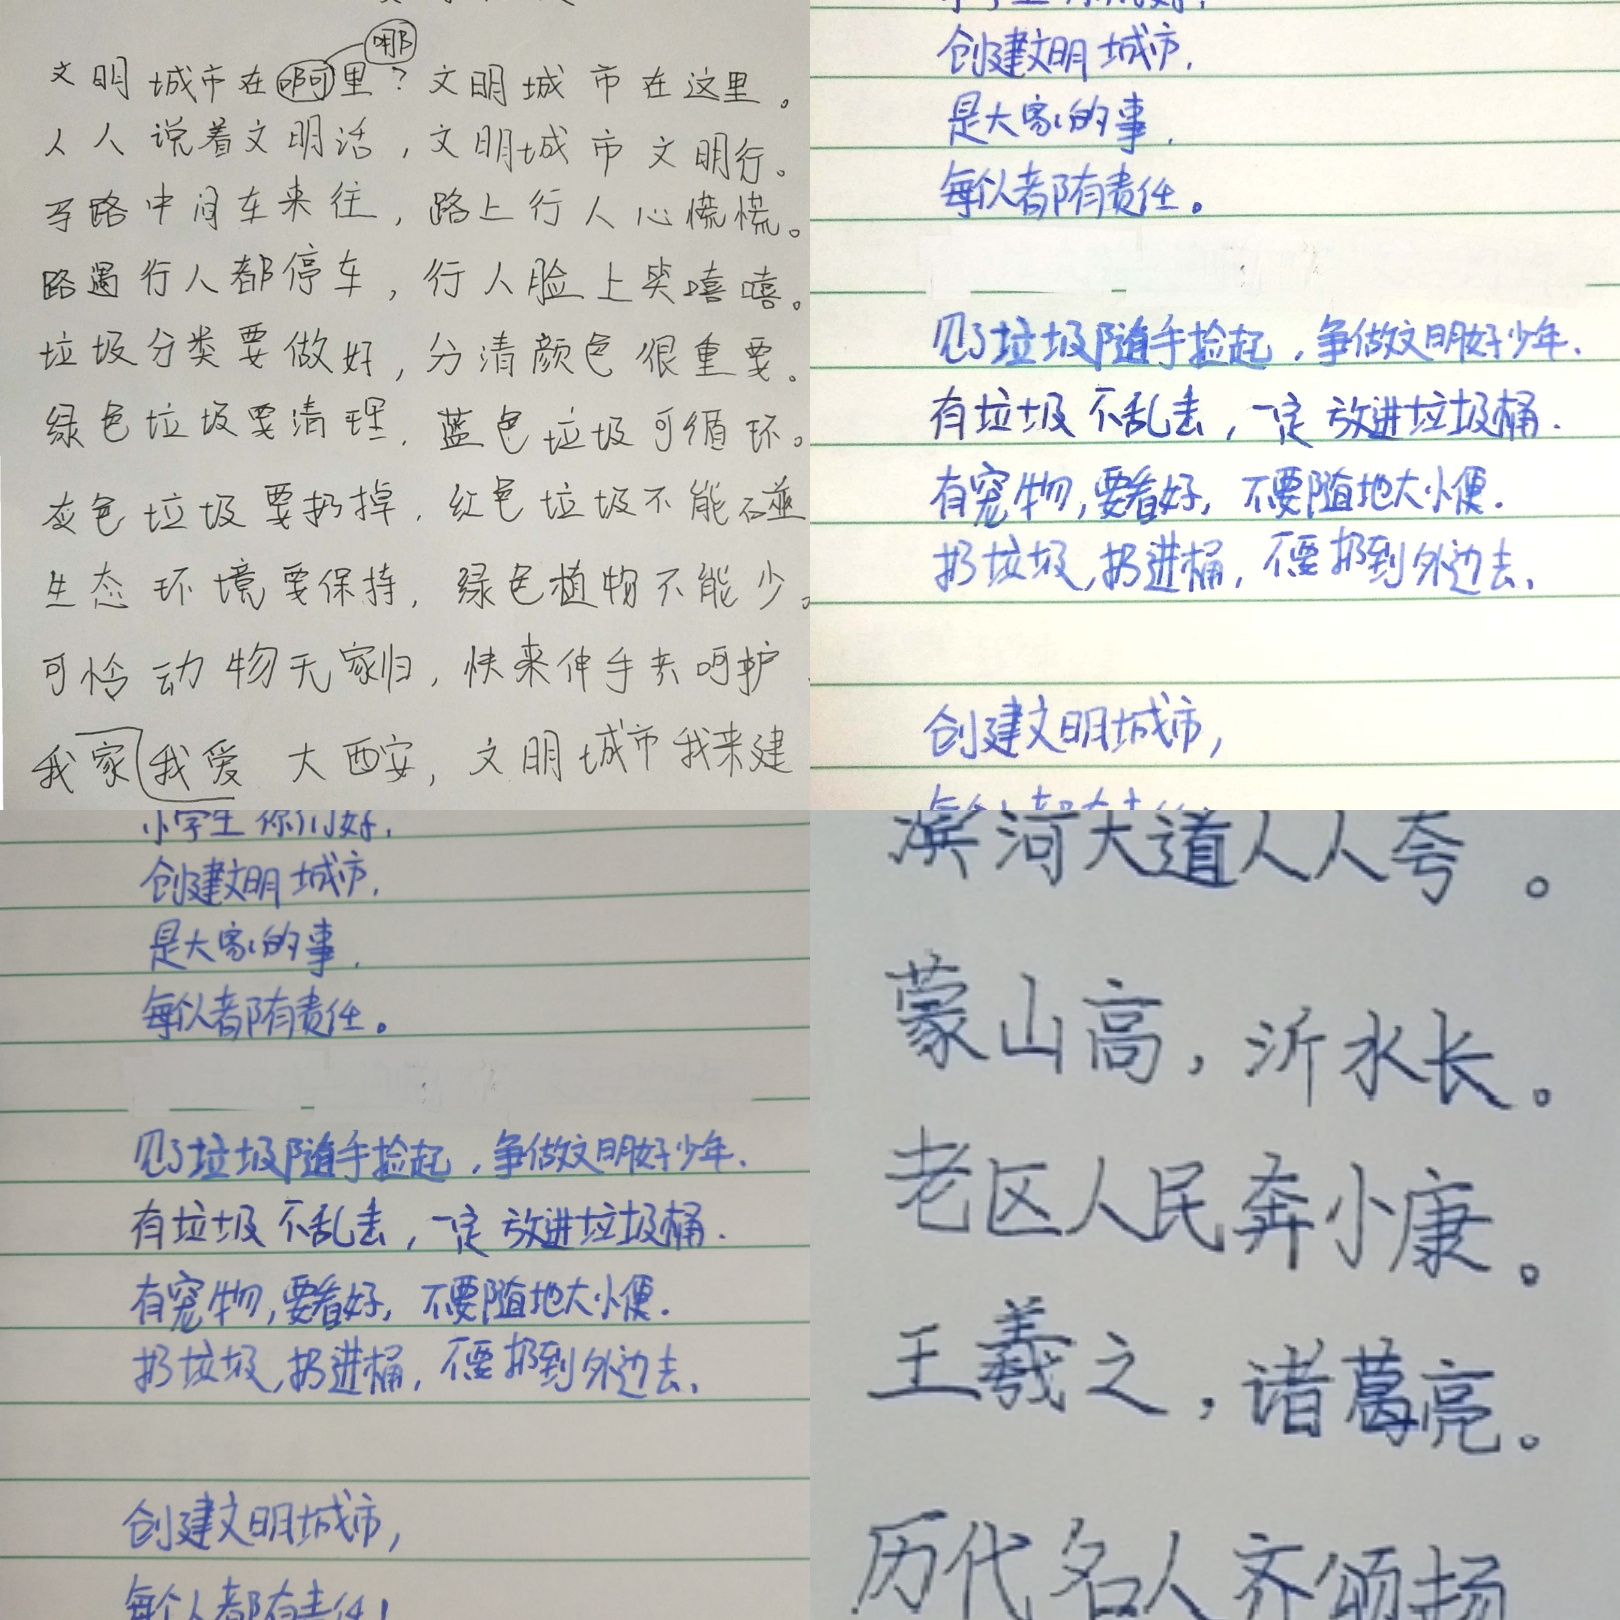 哪
文明城市在啊里？文明城市在这里。
人人说着文明活，文明城市文明行。
路中间车来往，路上行人心慌慌。
路遇行人都停车，行人脸上笑嘻嘻。
垃圾分类要做好，分清颜色很重要。
绿色垃圾要清理，蓝色垃圾可循环。
灰色垃圾要扔掉，红色垃圾不能碰
生态环境要保持，绿色植物不能少。
可怜动物无家归，快来伸手去呵护
我家我爱大西安，文明城市我来建
创建文明城市，
是大家的事，
每个人都有责任。
见了垃圾随手捡起，争做文明好少年。
有垃圾不乱丢，一定放进垃圾桶。
有宠物，要看好，不要随地大小便。
扔垃圾，扔进桶，不要扔到外边去。
创建文明城市，
小学生你们好，
创建文明城市，
是大家的事，
每个人都有责任。
见了垃圾随手捡起，争做文明好少年。
有垃圾不乱丢，一定放进垃圾桶。
有宠物，要看好，不要随地大小便。
扔垃圾，扔进桶，不要扔到外边去。
创建文明城市，
每个人都有责任！
滨河大道人人夸。
蒙山高，沂水长。
老区人民奔小康。
王羲之，诸葛亮。
历代名人齐颂扬